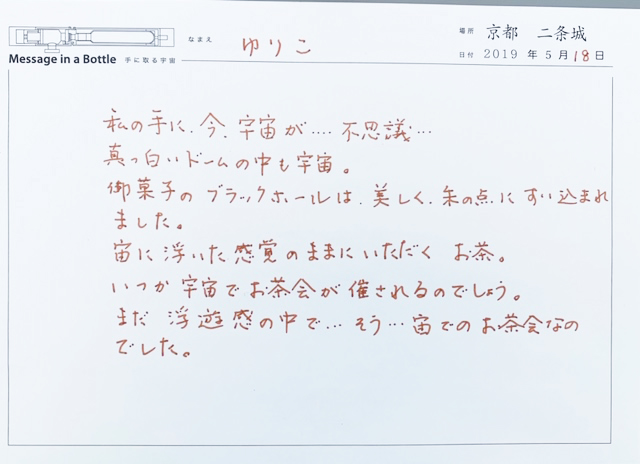 なまえ ゆりこ
場所 京都 二条城
Message in a Bottle 手に取る宇宙
日付 2019年5月18日
私の手に、今、宇宙が…. 不思議…
真っ白いドームの中も宇宙。
御菓子のブラックホールは、美しく、朱の点にすい込まれ
ました。
宙に浮いた感覚のままにいただく お茶。
いつか宇宙でお茶会が催されるのでしょう。
まだ 浮遊感の中で…そう…宙でのお茶会なの
でした。